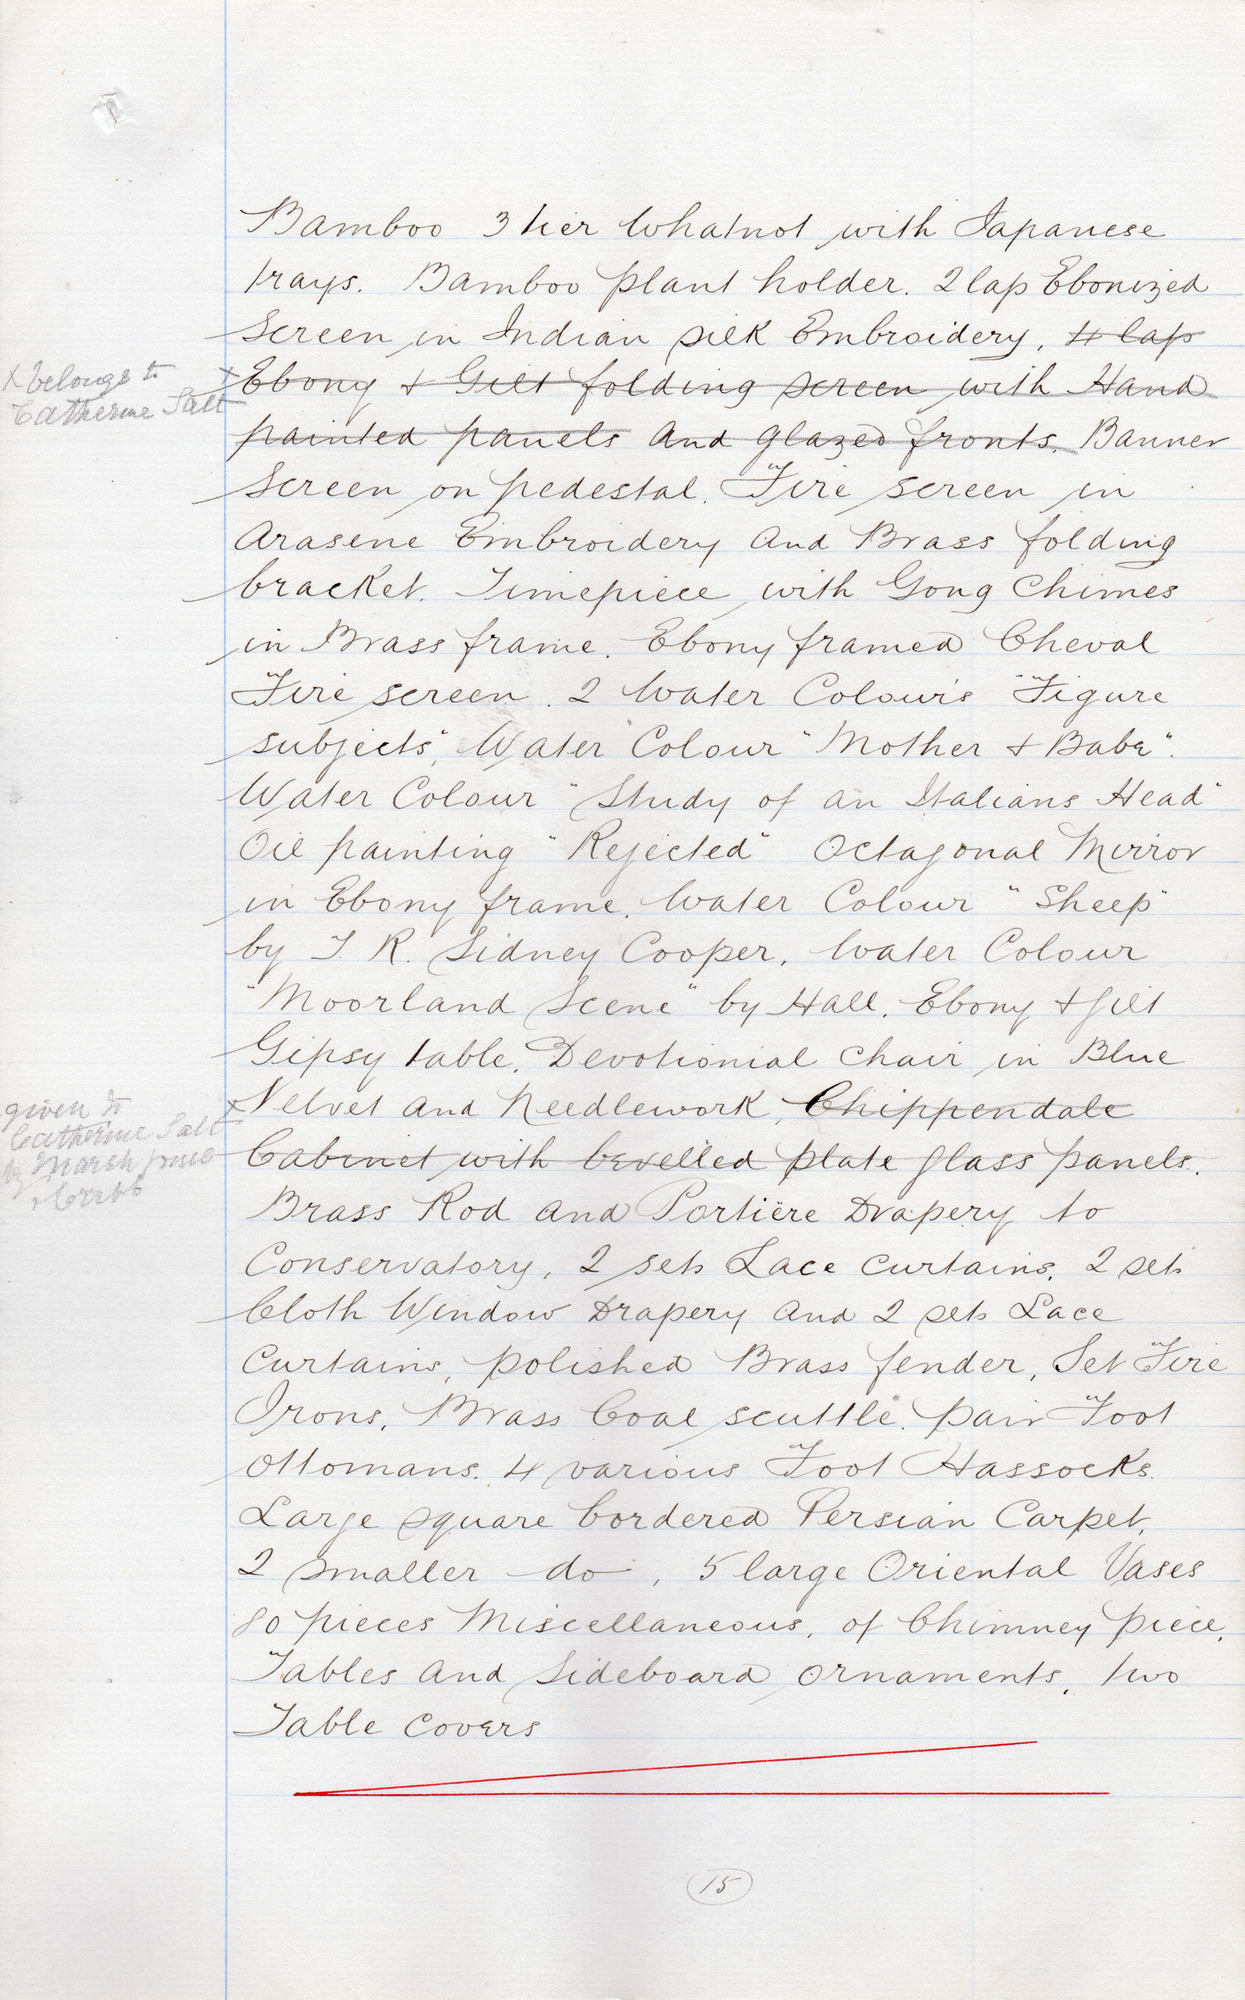 Bamboo 3 tier Whatnot with Japanese
trays. Bamboo plant holder. 2 lap Ebonized
Screen in Indian silk Embroidery, 4 lap
x belongs to
Catherine Salt
x Ebony & Gilt folding screen with Hand
painted panels and glazed fronts. Banner
Screen on pedestal. Fire screen in
Arasene Embroidery and Brass folding
bracket. Timepiece with Gong Chimes
in Brass frame. Ebony framed Cheval
Fire screen. 2 Water Colours "Figure
subjects", Water Colour "Mother & Babe".
Water Colour "Study of an Italians Head"
Oil painting "Rejected" Octagonal Mirror
in Ebony frame. Water Colour "Sheep"
by T. R. Sidney Cooper, Water Colour
"Moorland Scene" by Hall. Ebony & gilt
Gipsy table. Devotionial Chair in Blue
given to
Catherine Salt
by Marsh Jones
& Cribb
x Velvet and Needlework, Chippendale
Cabinet with bevelled plate glass panels.
Brass Rod and Portière Drapery to
Conservatory, 2 sets Lace Curtains. 2 sets
Cloth Window Drapery and 2 sets Lace
Curtains, polished Brass fender, Set Fire
Irons. Brass Coal scuttle. pair Foot
Ottomans. 4 various Foot Hassocks.
Large square bordered Persian Carpet,
2 smaller do, 5 large Oriental Vases
80 pieces Miscellaneous, of Chimney piece,
Tables and Sideboard ornaments, two
Table Covers
15